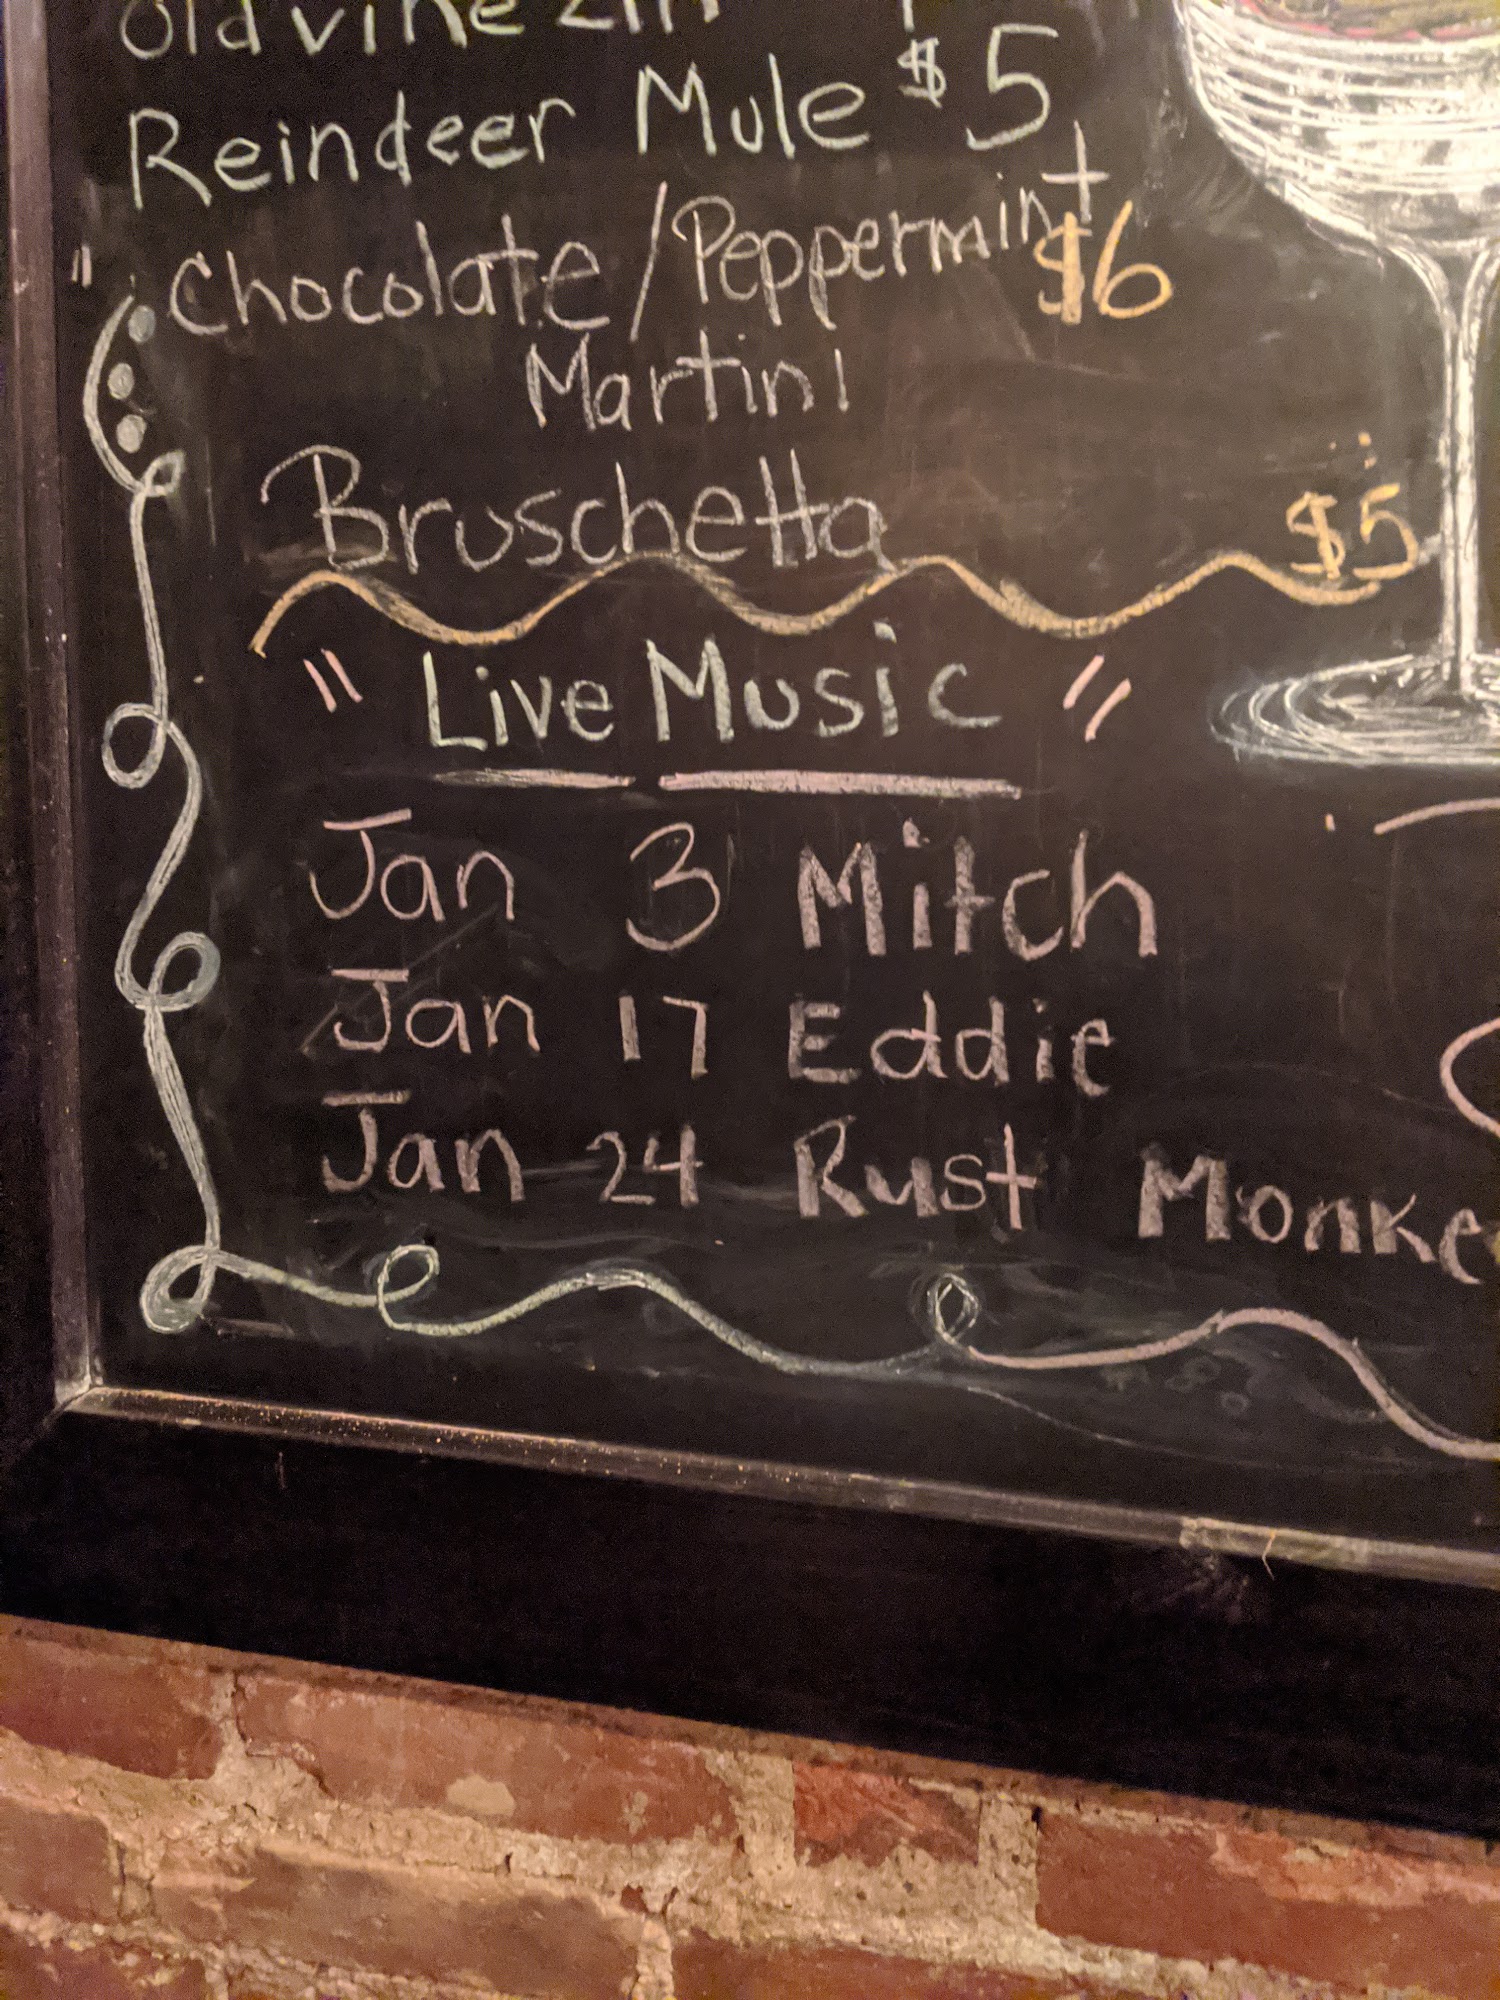 Old vine Zin
Reindeer Mule $5
" Chocolate/Peppermint $6
Martini
Bruschetta $5
" Live Music "
Jan 3 Mitch
Jan 17 Eddie
Jan 24 Rust Monke